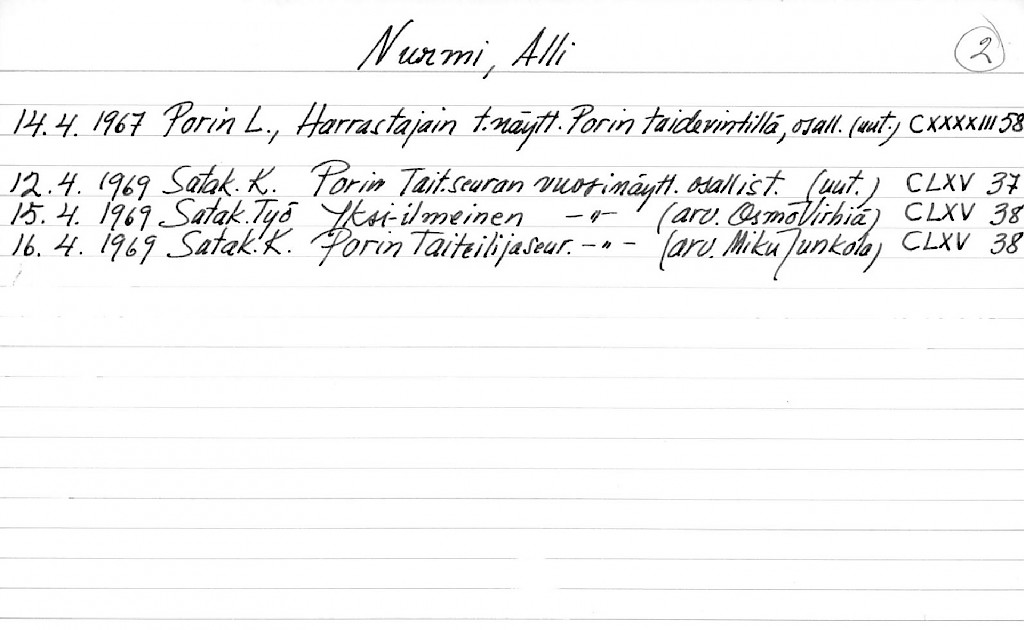 Nurmi, Alli
2
14.4. 1967 Porin L., Harrastajain t.näytt. Porin taidevintillä, osall. (uut.) CXXXXIII 58
12.4. 1969 Satak. K. Porin Tait.seuran vuosinäytt. osallist. (uut.) CLXV 37
15.4. 1969 Satak. Työ Yksi-ilmeinen -"- (arv. Osmo Virhiä) CLXV 38
16.4. 1969 Satak. K. Porin Taiteilijaseur. -"- (arv. Miku Junkola) CLXV 38